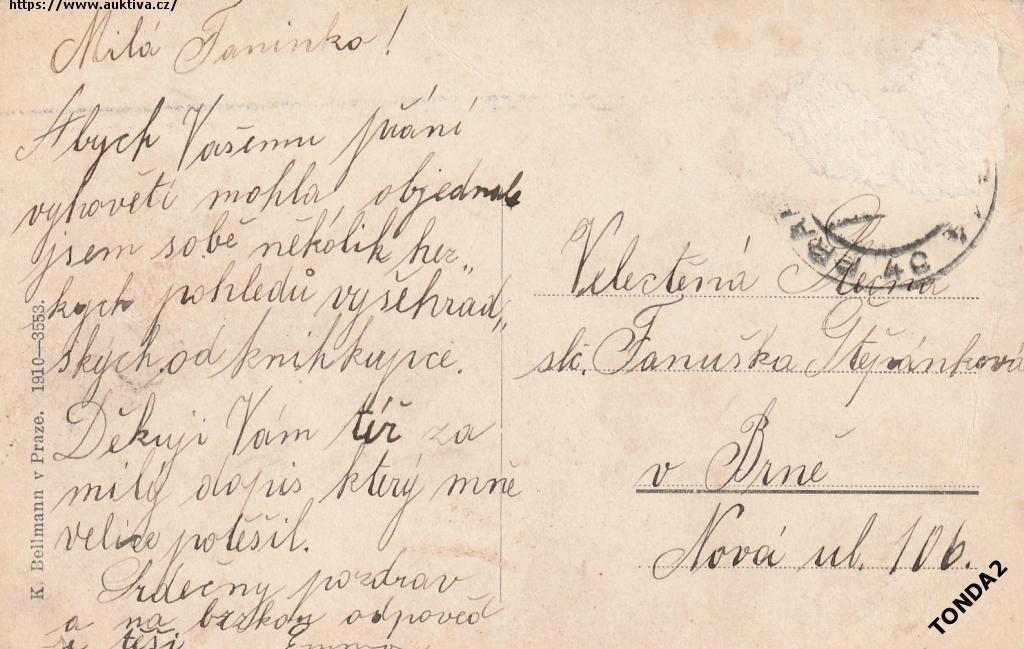 https://www.auktiva.cz/
Milá Faninko!
Abych Vašemu přání
vyhověti mohla, objednala
jsem sobě několik hez„
kých pohledů vyšehrad„
ských od knihkupce.
Děkuji Vám též za
milý dopis který mně
velice potěšil.
Srdečný pozdrav
a na brzkou odpověď
se těší Emma
K. Bellmann v Praze. 1910—3553.
PRA 4C
Velectěná Slečna
slč. Fanuška Štěpánková
v Brně
Nová ul. 106.
TONDA2